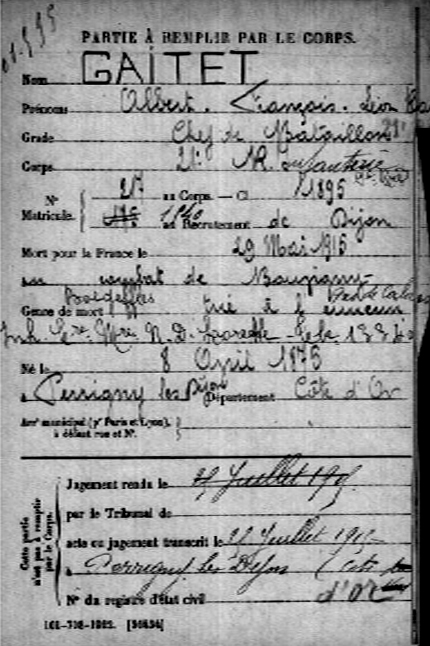 PARTIE À REMPLIR PAR LE CORPS.
Nom GAITET
Prénoms Albert. François. Léon
Grade Chef de Bataillon
Corps 21e R. Infanterie
N° Matricule. 217 au Corps. — Cl 1895
1140 au Recrutement de Dijon
Mort pour la France le 29 Mai 1915
au combat de Bouvigny
Boyeffles Pas de Calais
Genre de mort tué à l'ennemi
Inh. Cre Mre N. D. Lorette
Né le 8 Avril 1875
à Perrigny les Dijon Département Côte d'Or
Arr' municipal (p' Paris et Lyon), à défaut rue et N°.
Cette partie n'est pas à remplir par le Corps.
Jugement rendu le
par le Tribunal de
acte ou jugement transcrit le 22 Juillet
à Perrigny les Dijon (Côte
d'Or
N° du registre d'état civil